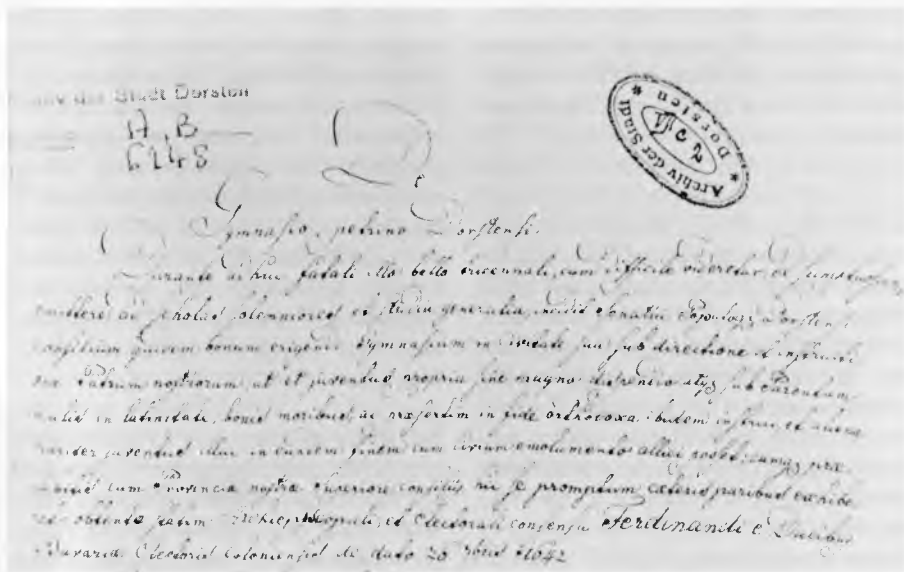 Archiv der Stadt Dorsten
A, B
6248
Archiv der Stadt
Dorsten
VII c 2
De
Gymnasio petrino Dorstensi.
Durante adhuc fatali illo bello tricennali, cum difficile videretur
ad scholas solemniores et studia generalia, incidit Senatui Populoq; Dorstensi
consilium quidem bonum erigendi Gymnasium in civitate sua sub directione et
Patrum nostrorum, ut et juventus propria sine magno dispendio atq; sub Parentum
in latinitate, bonis moribus, ac præsertim in fide orthodoxa ibidem instrui, et
pariter juventus illuc in eundem finem cum civium emolumento allici posset, cumq; præ
cum Provinciæ nostræ Superiore consiliis promptum cæteris paribus
obtento statim Archiepiscopali, et Electorali consensu Ferdinandi e Ducibus
Bavariæ Electoris Coloniensis de dato 20 1642